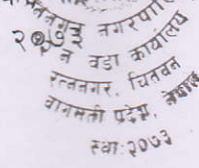 रत्ननगर नगरपालिका
२०७३
न वडा कार्यालय
रत्ननगर, चितवन
बागमती प्रदेश, नेपाल
स्था: २०७३